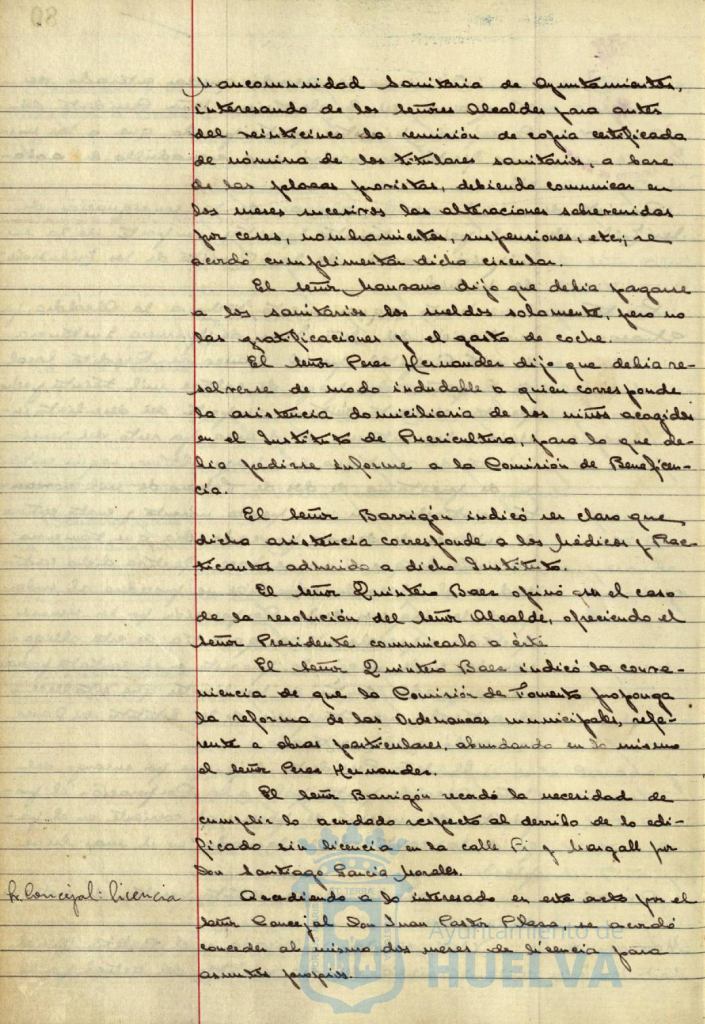 Mancomunidad Sanitaria de Ayuntamientos,
interesando de los señores Alcaldes para antes
del veinticinco la remisión de copia certificada
de nómina de los titulares sanitarios, a base
de las plazas provistas, debiendo comunicar en
los meses sucesivos las alteraciones sobrevenidas
por ceses, nombramientos, suspensiones, etc; se
acordó cumplimentar dicha circular.
El señor Manzano dijo que debia pagarse
a los sanitarios los sueldos solamente, pero no
las gratificaciones y el gasto de coche.
El señor Perez Hernandez dijo que debia re-
solverse de modo indudable a quien corresponde
la asistencia domiciliaria de los niños acogidos
en el Instituto de Puericultura, para lo que de-
bia pedirse informe a la Comisión de Beneficen-
cia.
El señor Barrigón indicó ser claro que
dicha asistencia corresponde a los Médicos y Prac-
ticantes adherido a dicho Instituto.
El señor Quintero Baez opinó era el caso
de la resolución del señor Alcalde, ofreciendo el
señor Presidente comunicarlo a éste
El señor Quintero Baez indicó la conve-
niencia de que la Comisión de Fomento proponga
la reforma de las Ordenanzas municipales, refe-
rente a obras particulares, abundando en lo mismo
el señor Perez Hernandez.
El señor Barrigón recordó la necesidad de
cumplir lo acordado respecto al derribo de lo edi-
ficado sin licencia en la calle Pi y Margall por
Don Santiago Garcia Morales.
Sr. Concejal: licencia
Accediendo a lo interesado en este acto por el
señor Concejal Don Juan Pastor Plaza, se acordó
conceder al mismo dos meses de licencia para
asuntos propios.
Ayuntamiento de
HUELVA